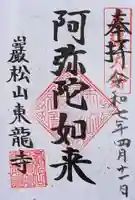 奉拝
令和七年四月十一日
阿弥陀如来
巌松山東龍寺